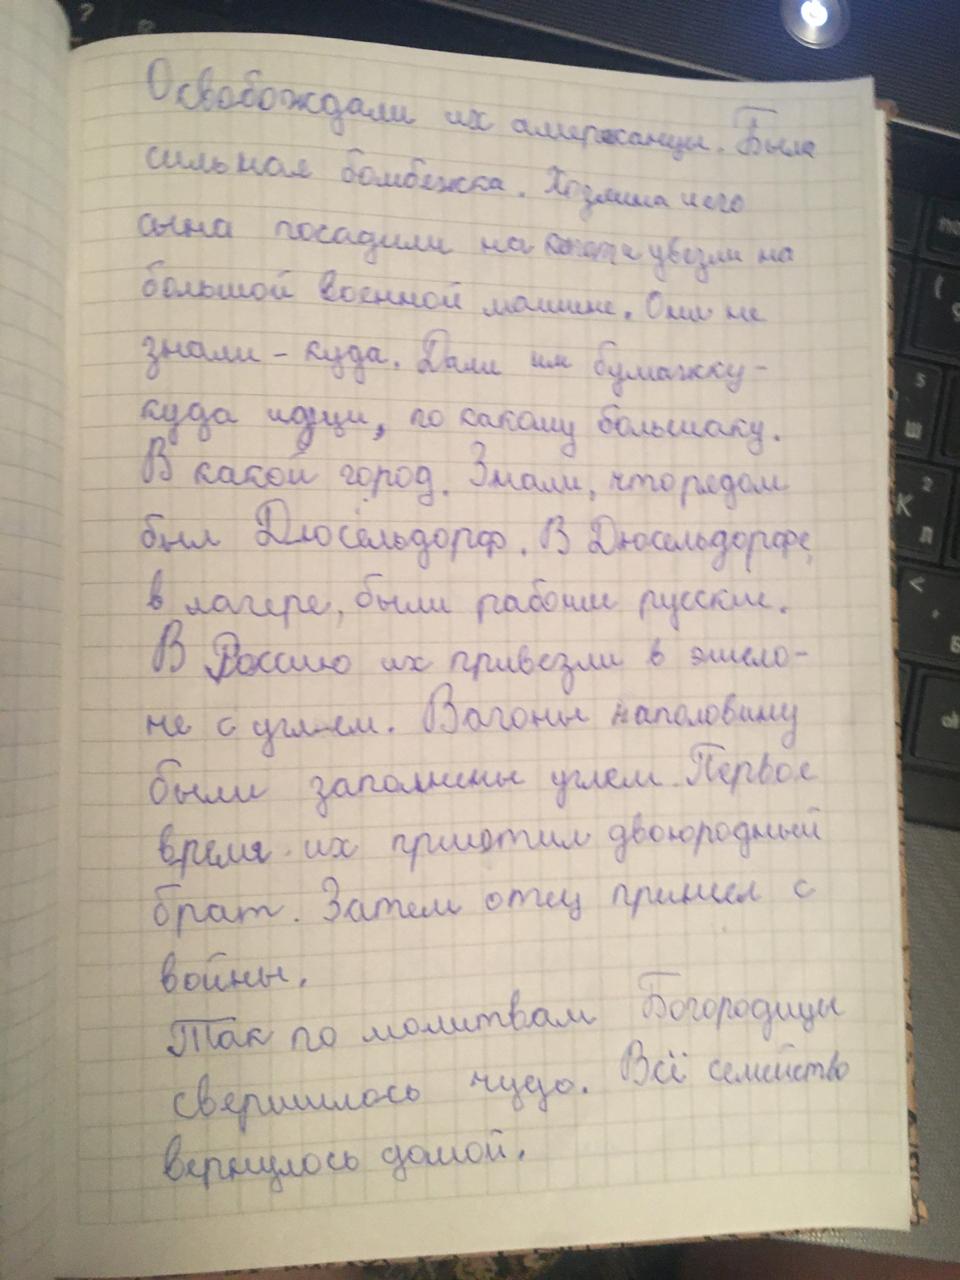 Освобождали их американцы. Была
сильная бомбёжка. Хозяина и его
сына посадили на капот и увезли на
большой военной машине. Они не
знали - куда. Дали им бумажку -
куда идти, по какому большаку.
В какой город. Знали, что рядом
был Дюсельдорф. В Дюсельдорфе,
в лагере, были рабочие русские.
В Россию их привезли в эшело-
не с углем. Вагоны наполовину
были заполнены углем. Первое
время их приютил двоюродный
брат. Затем отец пришел с
войны.
Так по молитвам Богородицы
свершилось чудо. Всё семейство
вернулось домой.